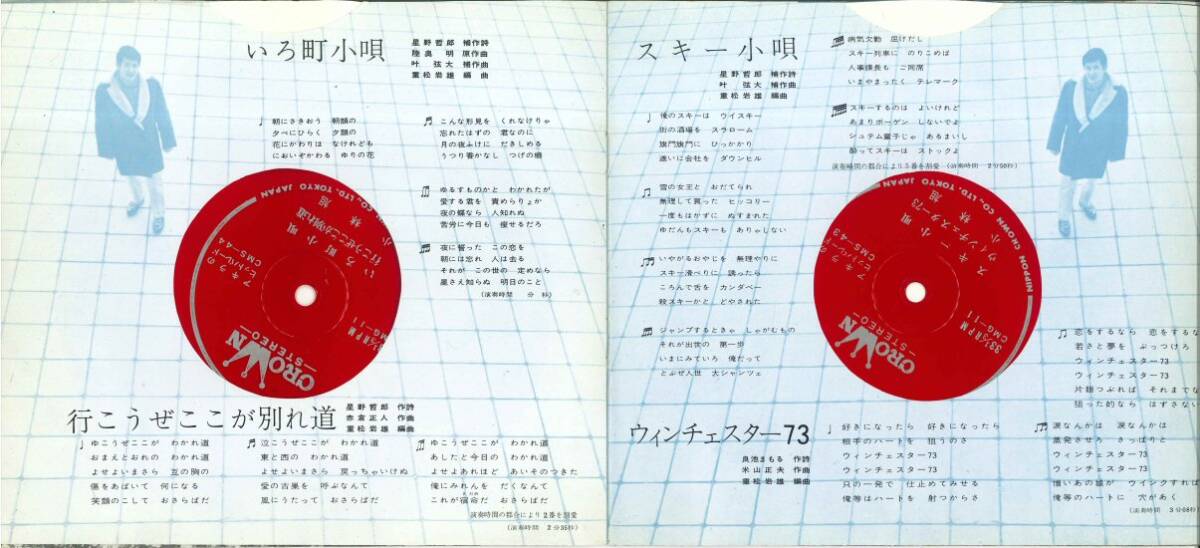 いろ町小唄
星野哲郎 補作詩
陸奥明 原作曲
叶弦大 補作曲
重松岩雄 編曲
朝にさきおう 朝顔の
夕べにひらく 夕顔の
花にかわりは なけれども
においぞかわる ゆりの花
こんな形見を くれなけりゃ
忘れたはずの 君なのに
月の夜ふけに だきしめる
うつり香かなし つげの櫛
ゆるすものかと わかれたが
愛する君を 責めらりょか
夜の蝶なら 人知れぬ
苦労に今日も 痩せるだろ
夜に誓った この恋を
朝には忘れ 人は去る
それが この世の 定めなら
星さえ知らぬ 明日のこと
(演奏時間 分 秒)
NIPPON CROWN CO., LTD. TOKYO JAPAN
小林旭
いろ町小唄
行こうぜここが別れ道
アキラの
ヒットパレード
CMS-44
33 1/3 RPM
CMG-11
CROWN
STEREO
行こうぜここが別れ道
星野哲郎 作詩
赤倉正人 作曲
重松岩雄 編曲
ゆこうぜここが わかれ道
おまえとおれの わかれ道
よせよいまさら 互の胸の
傷をあばいて 何になる
笑顔のこして おさらばだ
泣こうぜここが わかれ道
東と西の わかれ道
よせよいまさら 戻っちゃいけぬ
愛の古巣を 呼ぶなんて
風にうたって おさらばだ
ゆこうぜここが わかれ道
あしたと今日の わかれ道
よせよあれほど あいそのつきた
俺にみれんを だくなんて
これが宿命だ おさらばだ
演奏時間の都合により2番を割愛
(演奏時間 2分35秒)
スキー小唄
星野哲郎 補作詩
叶弦大 補作曲
重松岩雄 編曲
俺のスキーは ウイスキー
街の酒場を スラローム
旗門旗門に ひっかかり
遂いに会社を ダウンヒル
雪の女王と おだてられ
無理して買った ヒッコリー
一度もはかずに ぬすまれた
ゆだんもスキーも ありゃしない
いやがるおやじを 無理やりに
スキー滑べりに 誘ったら
ころんで舌を カンダベー
殺スキーかと どやされた
ジャンプするときゃ しゃがむもの
それが出世の 第一歩
いまにみていろ 俺だって
とぶぜ人世 大シャンツェ
病気欠勤 届けだし
スキー列車に のりこめば
人事課長も ご同席
いまやまったく テレマーク
スキーするのは よいけれど
あまりボーゲン しないでよ
シュテム童子じゃ あるまいし
酔ってスキーは ストックよ
演奏時間の都合により5番を割愛 (演奏時間 2分50秒)
NIPPON CROWN CO., LTD. TOKYO JAPAN
小林旭
スキー小唄
ウィンチェスター73
アキラの
ヒットパレード
CMS-43
33 1/3 RPM
CMG-11
CROWN
STEREO
ウィンチェスター73
良池まもる 作詩
米山正夫 作曲
重松岩雄 編曲
好きになったら 好きになったら
相手のハートを 狙うのさ
ウィンチェスター73
ウィンチェスター73
只の一発で 仕止めてみせる
俺等はハートを 射つからさ
恋をするなら 恋をするな
若さと夢を ぶっつけろ
ウィンチェスター73
ウィンチェスター73
片想つぶれば それまでな
狙った的なら はずさない
涙なんかは 涙なんかは
蒸発させろ さっぱりと
ウィンチェスター73
ウィンチェスター73
憎いあの娘が ウインクすれば
俺等のハートに 穴があく
(演奏時間 3分08秒)